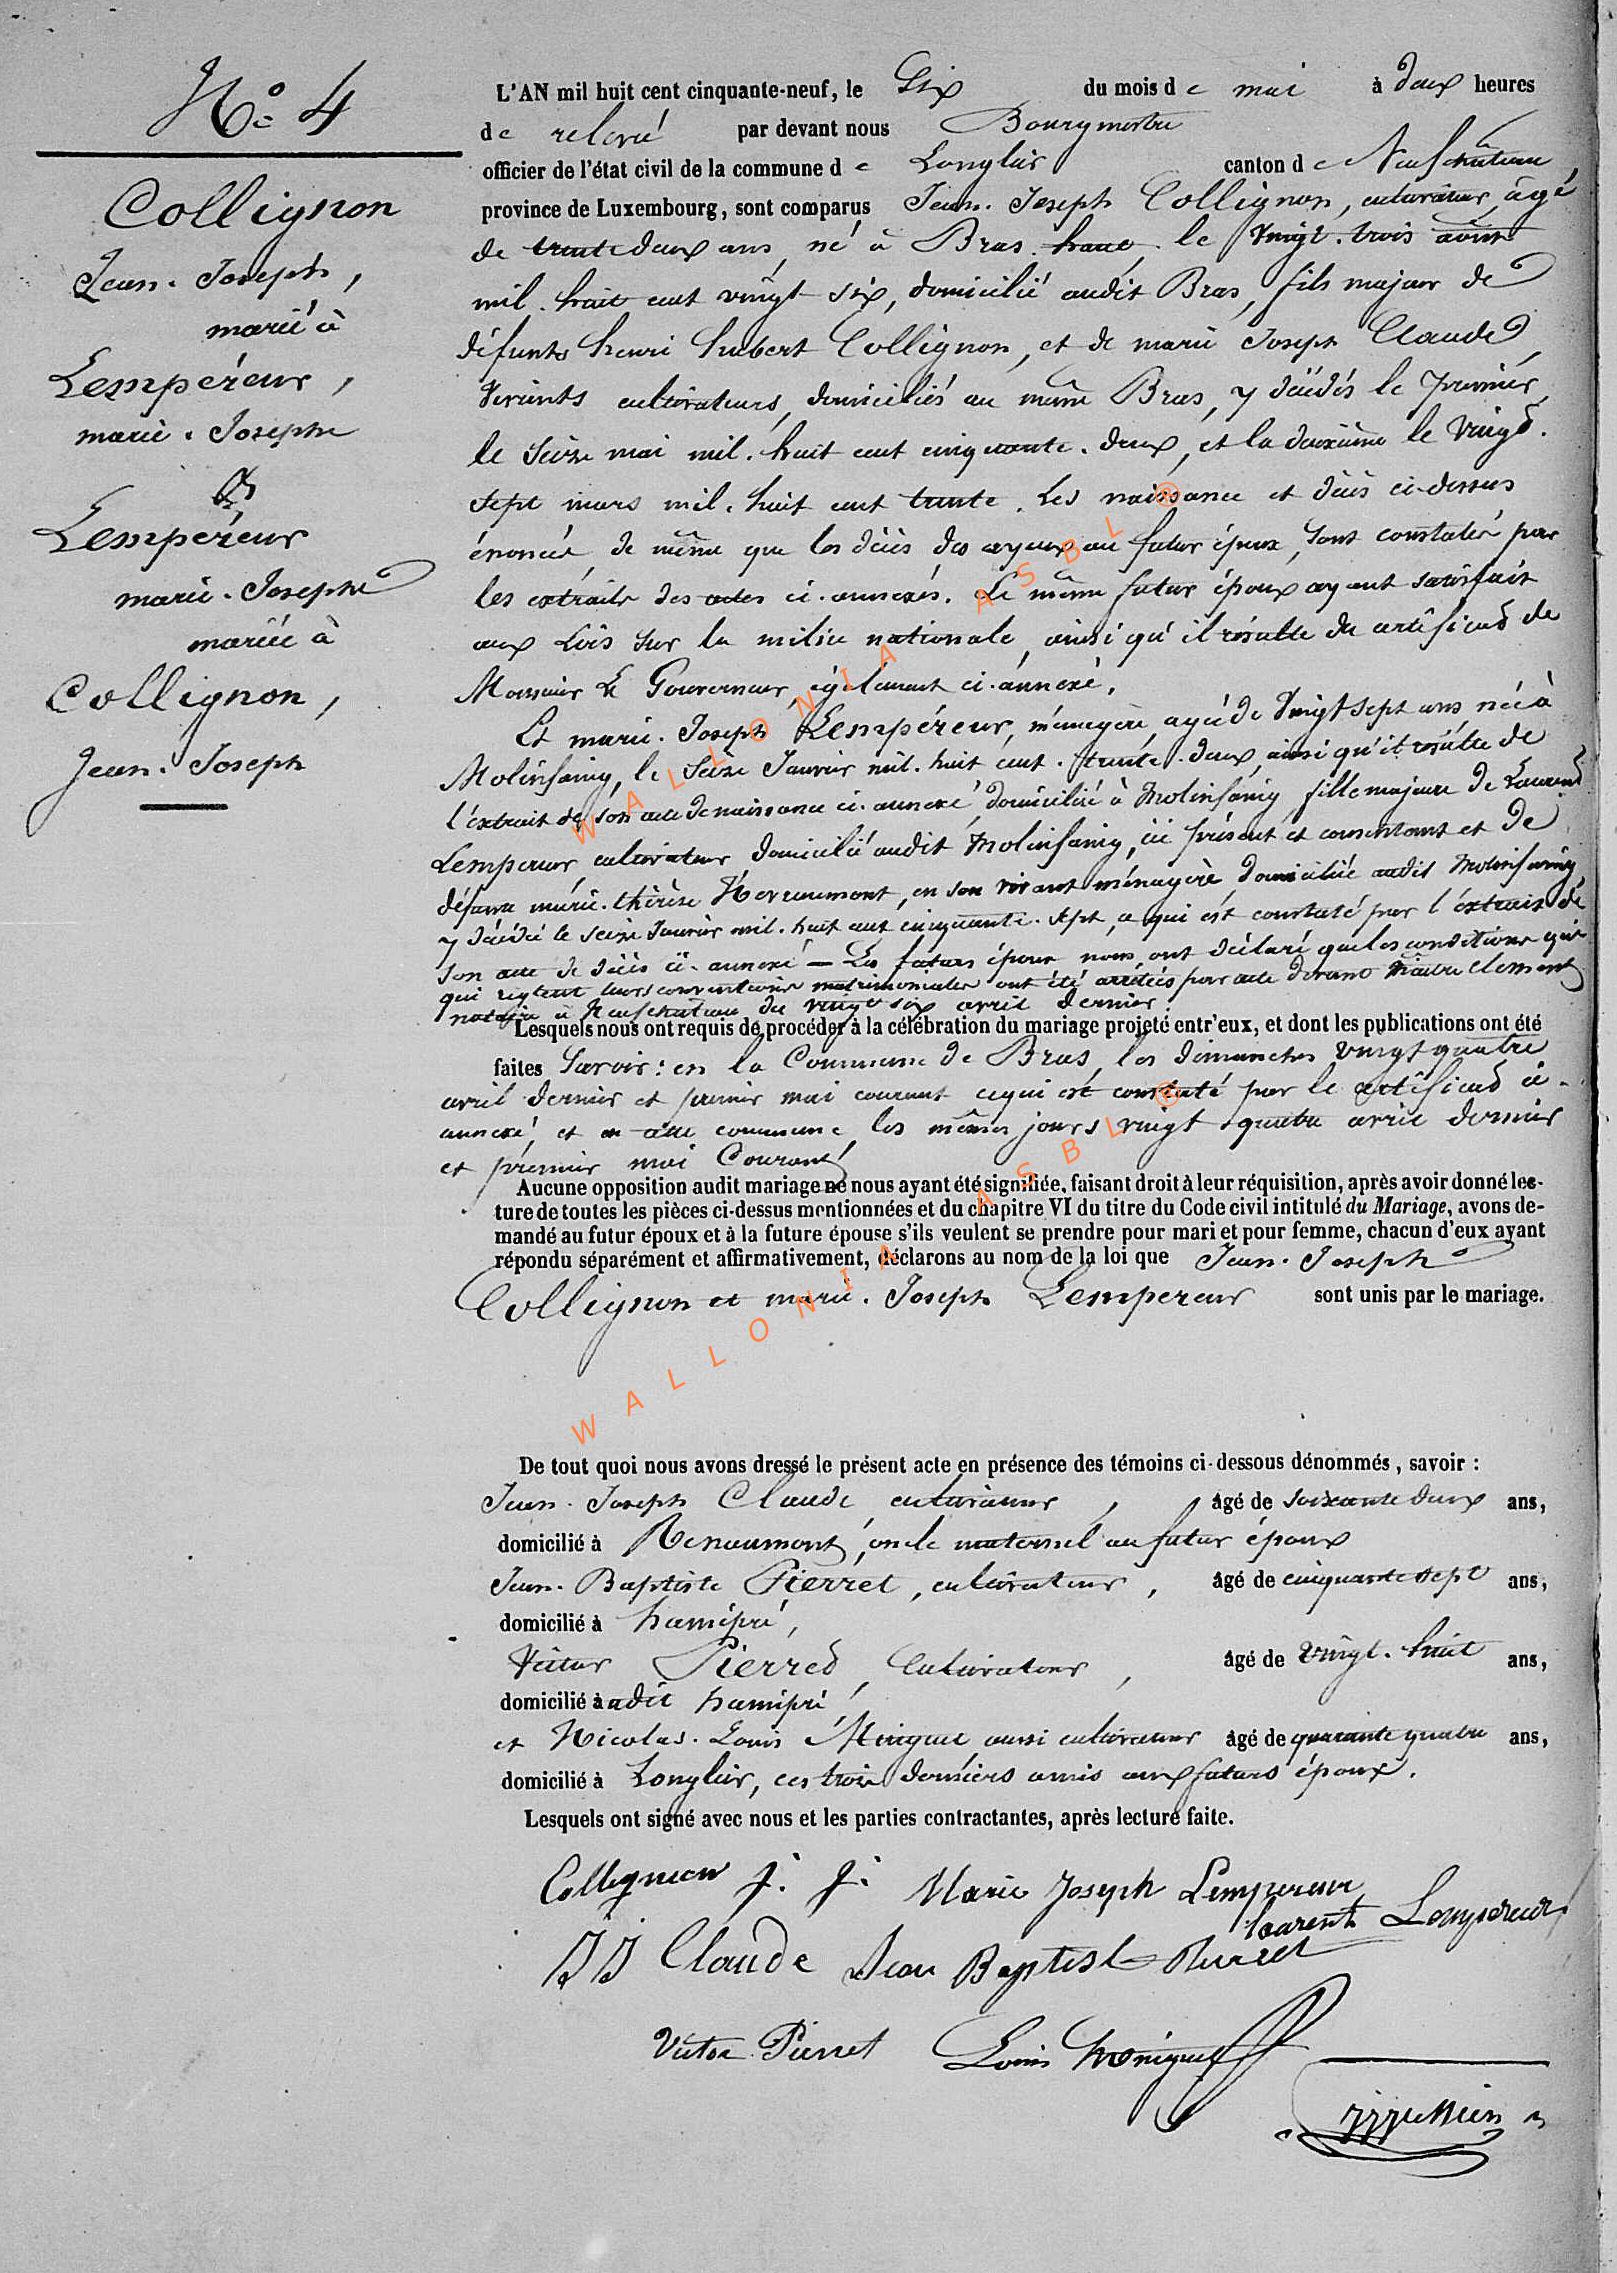 N° 4
Collignon
Jean-Joseph,
marié à
Lempéreur,
marie-Josephe
&
Lempéreur
marie-Josephe
mariée à
Collignon,
Jean-Joseph
L'AN mil huit cent cinquante-neuf, le Six du mois de mai à deux heures
de relevé par devant nous Bourgmestre
officier de l'état civil de la commune de Longlier canton de Neufchâteau
province de Luxembourg, sont comparus Jean-Joseph Collignon, cultivateur, âgé
de trente deux ans, né à Bras-haut, le Vingt-trois août
mil-huit cent vingt-six, domicilié audit Bras, fils majeur de
défunts henri hubert Collignon, et de marie Joseph Claude,
Vivants cultivateurs, domiciliés au même Bras, y décédés le premier
le Seize mai mil-huit cent cinquante-deux, et la deuxième le Vingt-
sept mars mil-huit cent trente. Les naissance et décès ci-dessus
énoncés, de même que les décès des ayeux au futur époux, sont constatés par
les extraits des actes ci-annexés. Le même futur époux ayant satisfait
aux Lois sur la milice nationale, ainsi qu'il résulte du certificat de
Monsieur Le Gouverneur également ci-annexé.
Et marie-Joseph Lempéreur, ménagère, agée de Vingt sept ans née à
Molinfaing, le Seize Janvier mil-huit cent-trente-deux, ainsi qu'il résulte de
l'extrait de son acte de naissance ci-annexé, domiciliée à Molinfaing, fille majeure de Laurent
Lempereur, cultivateur domicilié audit Molinfaing, ici présent et consentant et de
défunte marie-thérèse, en son vivant ménagère domiciliée audit Molinfaing,
y décédée le seize Janvier mil-huit cent cinquante-sept, ce qui est constaté par l'extrait de
son acte de décès ci-annexé — Les futurs époux nous ont déclaré que les conditions qui
qui règlent leurs conventions matrimoniales ont été arrêtées par acte devant Maître Clement
notaire à Neufchâteau du vingt six avril dernier.
Lesquels nous ont requis de procéder à la célébration du mariage projeté entr'eux, et dont les publications ont été
faites Savoir: en la Commune de Bras, les dimanches vingt quatre
avril dernier et premier mai courant ce qui est constaté par le certificat ci-
annexé, et en cette commune, les mêmes jours vingt-quatre avril dernier
et premier mai Courant,
Aucune opposition audit mariage ne nous ayant été signifiée, faisant droit à leur réquisition, après avoir donné lec-
ture de toutes les pièces ci-dessus mentionnées et du chapitre VI du titre du Code civil intitulé du Mariage, avons de-
mandé au futur époux et à la future épouse s'ils veulent se prendre pour mari et pour femme, chacun d'eux ayant
répondu séparément et affirmativement, déclarons au nom de la loi que Jean-Joseph
Collignon et marie-Joseph Lempereur sont unis par le mariage.
De tout quoi nous avons dressé le présent acte en présence des témoins ci-dessous dénommés, savoir :
Jean-Joseph Claude cultivateur, âgé de soixante deux ans,
domicilié à Renaumont, oncle maternel au futur époux
Jean-Baptiste Pierret, cultivateur, âgé de cinquante sept ans,
domicilié à hamipré,
Victor Pierret, Cultivateur, âgé de vingt-huit ans,
domicilié à audit hamipré,
et Nicolas-Louis aussi cultivateur âgé de quarante quatre ans,
domicilié à Longlier, ces trois derniers amis aux futurs époux.
Lesquels ont signé avec nous et les parties contractantes, après lecture faite.
Collignon j. j. Marie Joseph Lempereur
laurent Lempereur
JJ Claude Jean Baptiste Pierret
Victor Pierret Louis
WALLONIA ASBL ®
WALLONIA ASBL ®